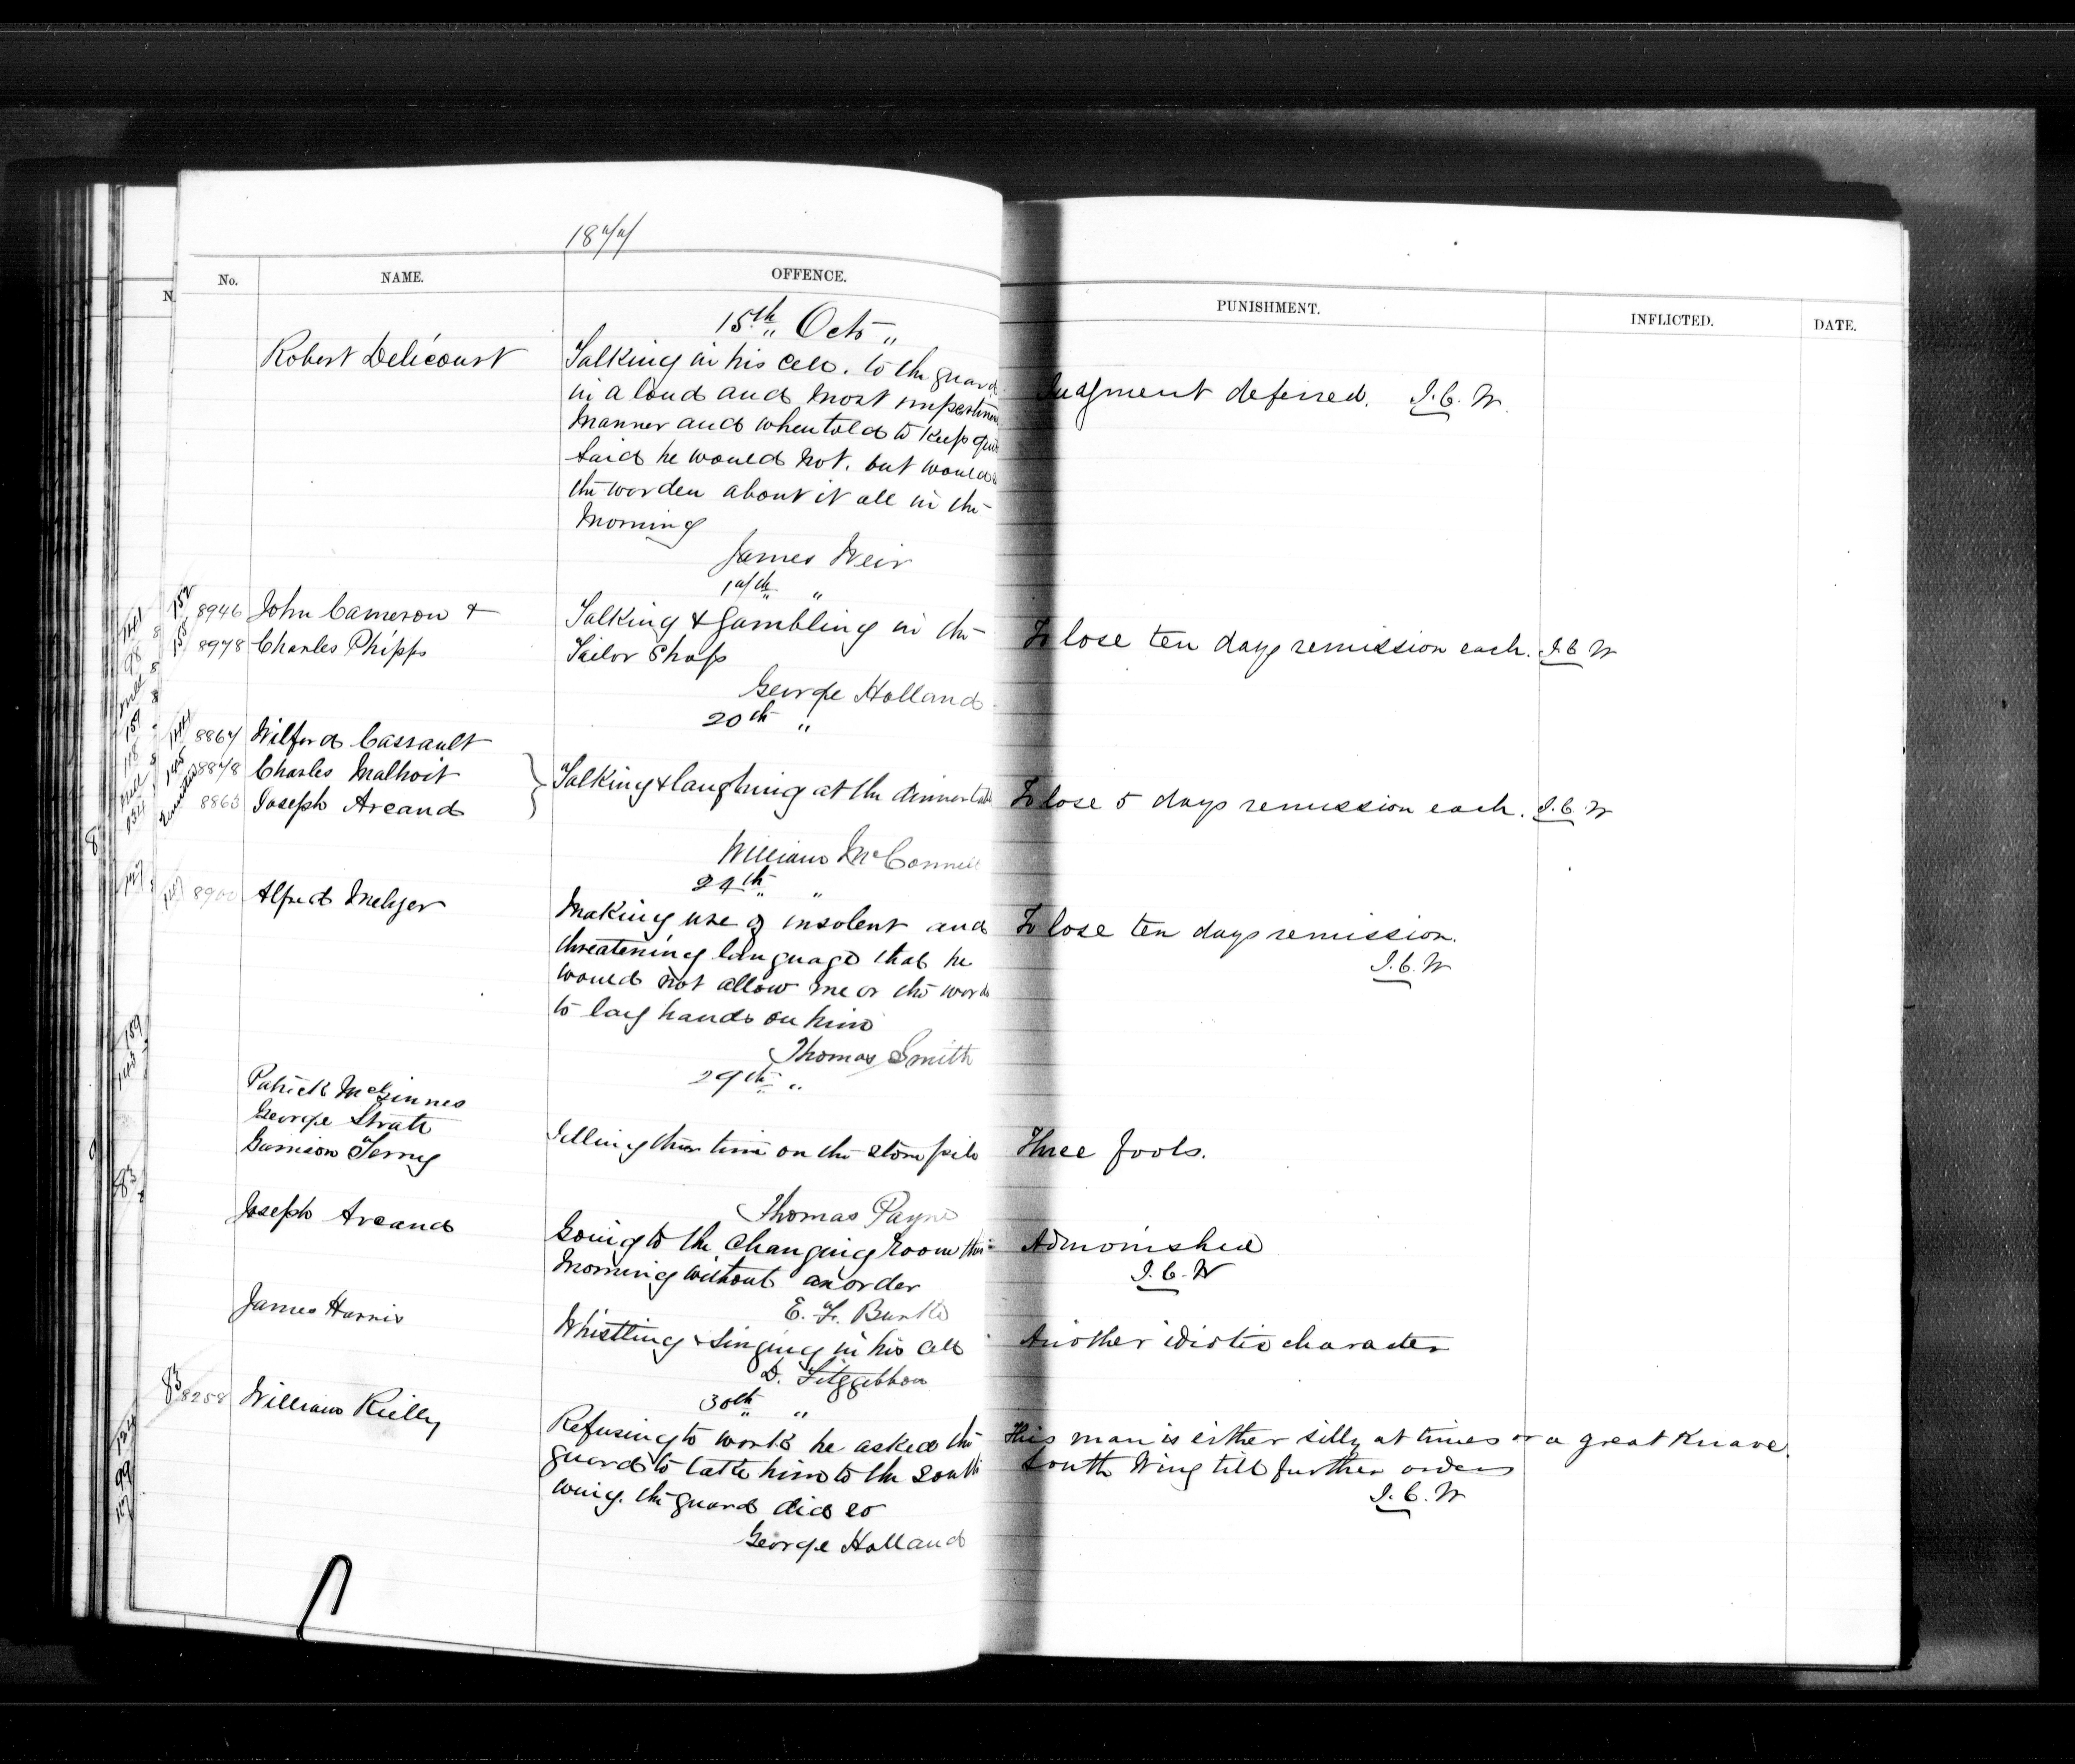 1877
No. NAME. OFFENCE. PUNISHMENT. INFLICTED. DATE.
15th Octo "
Robert Delécourt
Talking in his cell. to the guard
in a loud and most impertinent
manner and when told to keep quie
said he would not. but would
the warden about it all in the
morning
James Weir
Judgment deferred. J. C. W.
17th "
152 8946 John Cameron +
155 8978 Charles Phipps
Talking & Gambling in the
Tailor Shop
George Holland
To lose ten days remission each. J C W
20th "
144 8867 Wilford Cassault
145 8878 Charles Malhoit
8863 Joseph Arcand
Talking & laughing at the dinner tabl
William McConnell
To lose 5 days remission each. J. C. W
24th "
147 8900 Alfred Melzer
Making use of insolent and
threatening language that he
would not allow me or the warde
to lay hands on him
Thomas Smith
To lose ten days remission.
J. C. W
29th "
Patrick McGinnes
George Strate
Garrison Terry
Idling their time on the stone pile
Thomas Payne
Three fools.
Joseph Arcand
Going to the changing room this
morning without an order
E. F. Burke
Admonished
J. C. W
James Harris
Whistling & Singing in his cell
D. Fitzgibbon
Another idiotic character
30th "
83 8258 William Rielly
Refusing to work he asked the
guard to take him to the South
wing. the guard did so
George Holland
This man is either silly at times or a great Knave.
South Wing till further orders
J. C. W